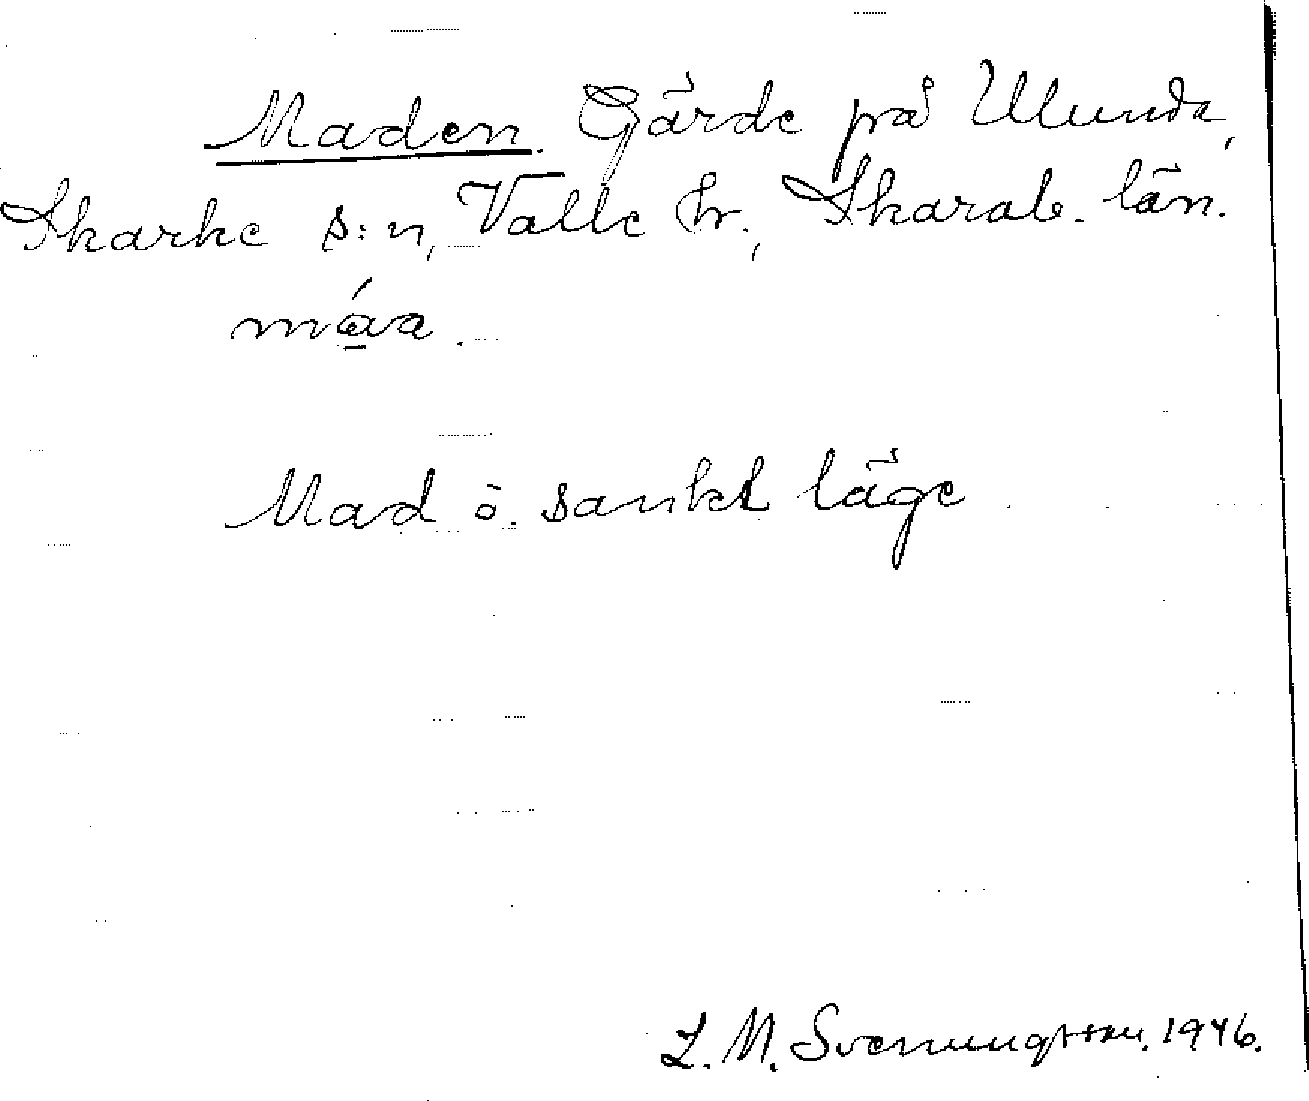 Maden. Gärde på Ulunda,
Skarke s:n, Valle hr., Skarab. län.
máa.
Mad o. sankt läge
L. M. Svenungsson. 1946.